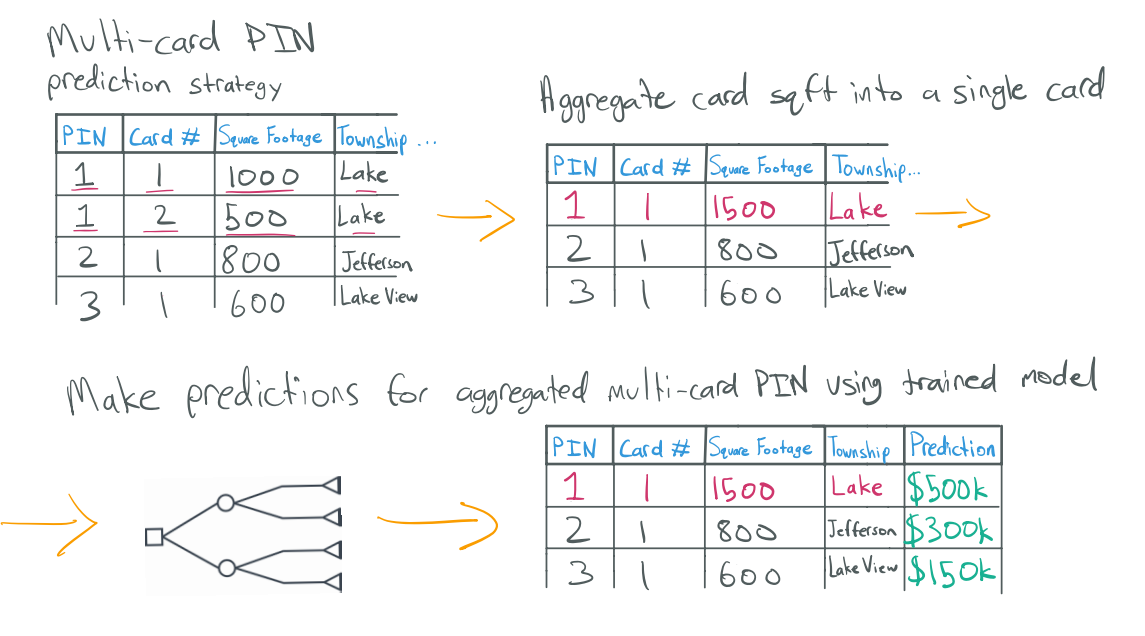 Multi-card PIN
prediction strategy
PIN Card # Square Footage Township ...
1 1 1000 Lake
1 2 500 Lake
2 1 800 Jefferson
3 1 600 Lake View
Aggregate card sqft into a single card
PIN Card # Square Footage Township...
1 1 1500 Lake
2 1 800 Jefferson
3 1 600 Lake View
Make predictions for aggregated multi-card PIN using trained model
PIN Card # Square Footage Township Prediction
1 1 1500 Lake $500k
2 1 800 Jefferson $300k
3 1 600 Lake View $150k